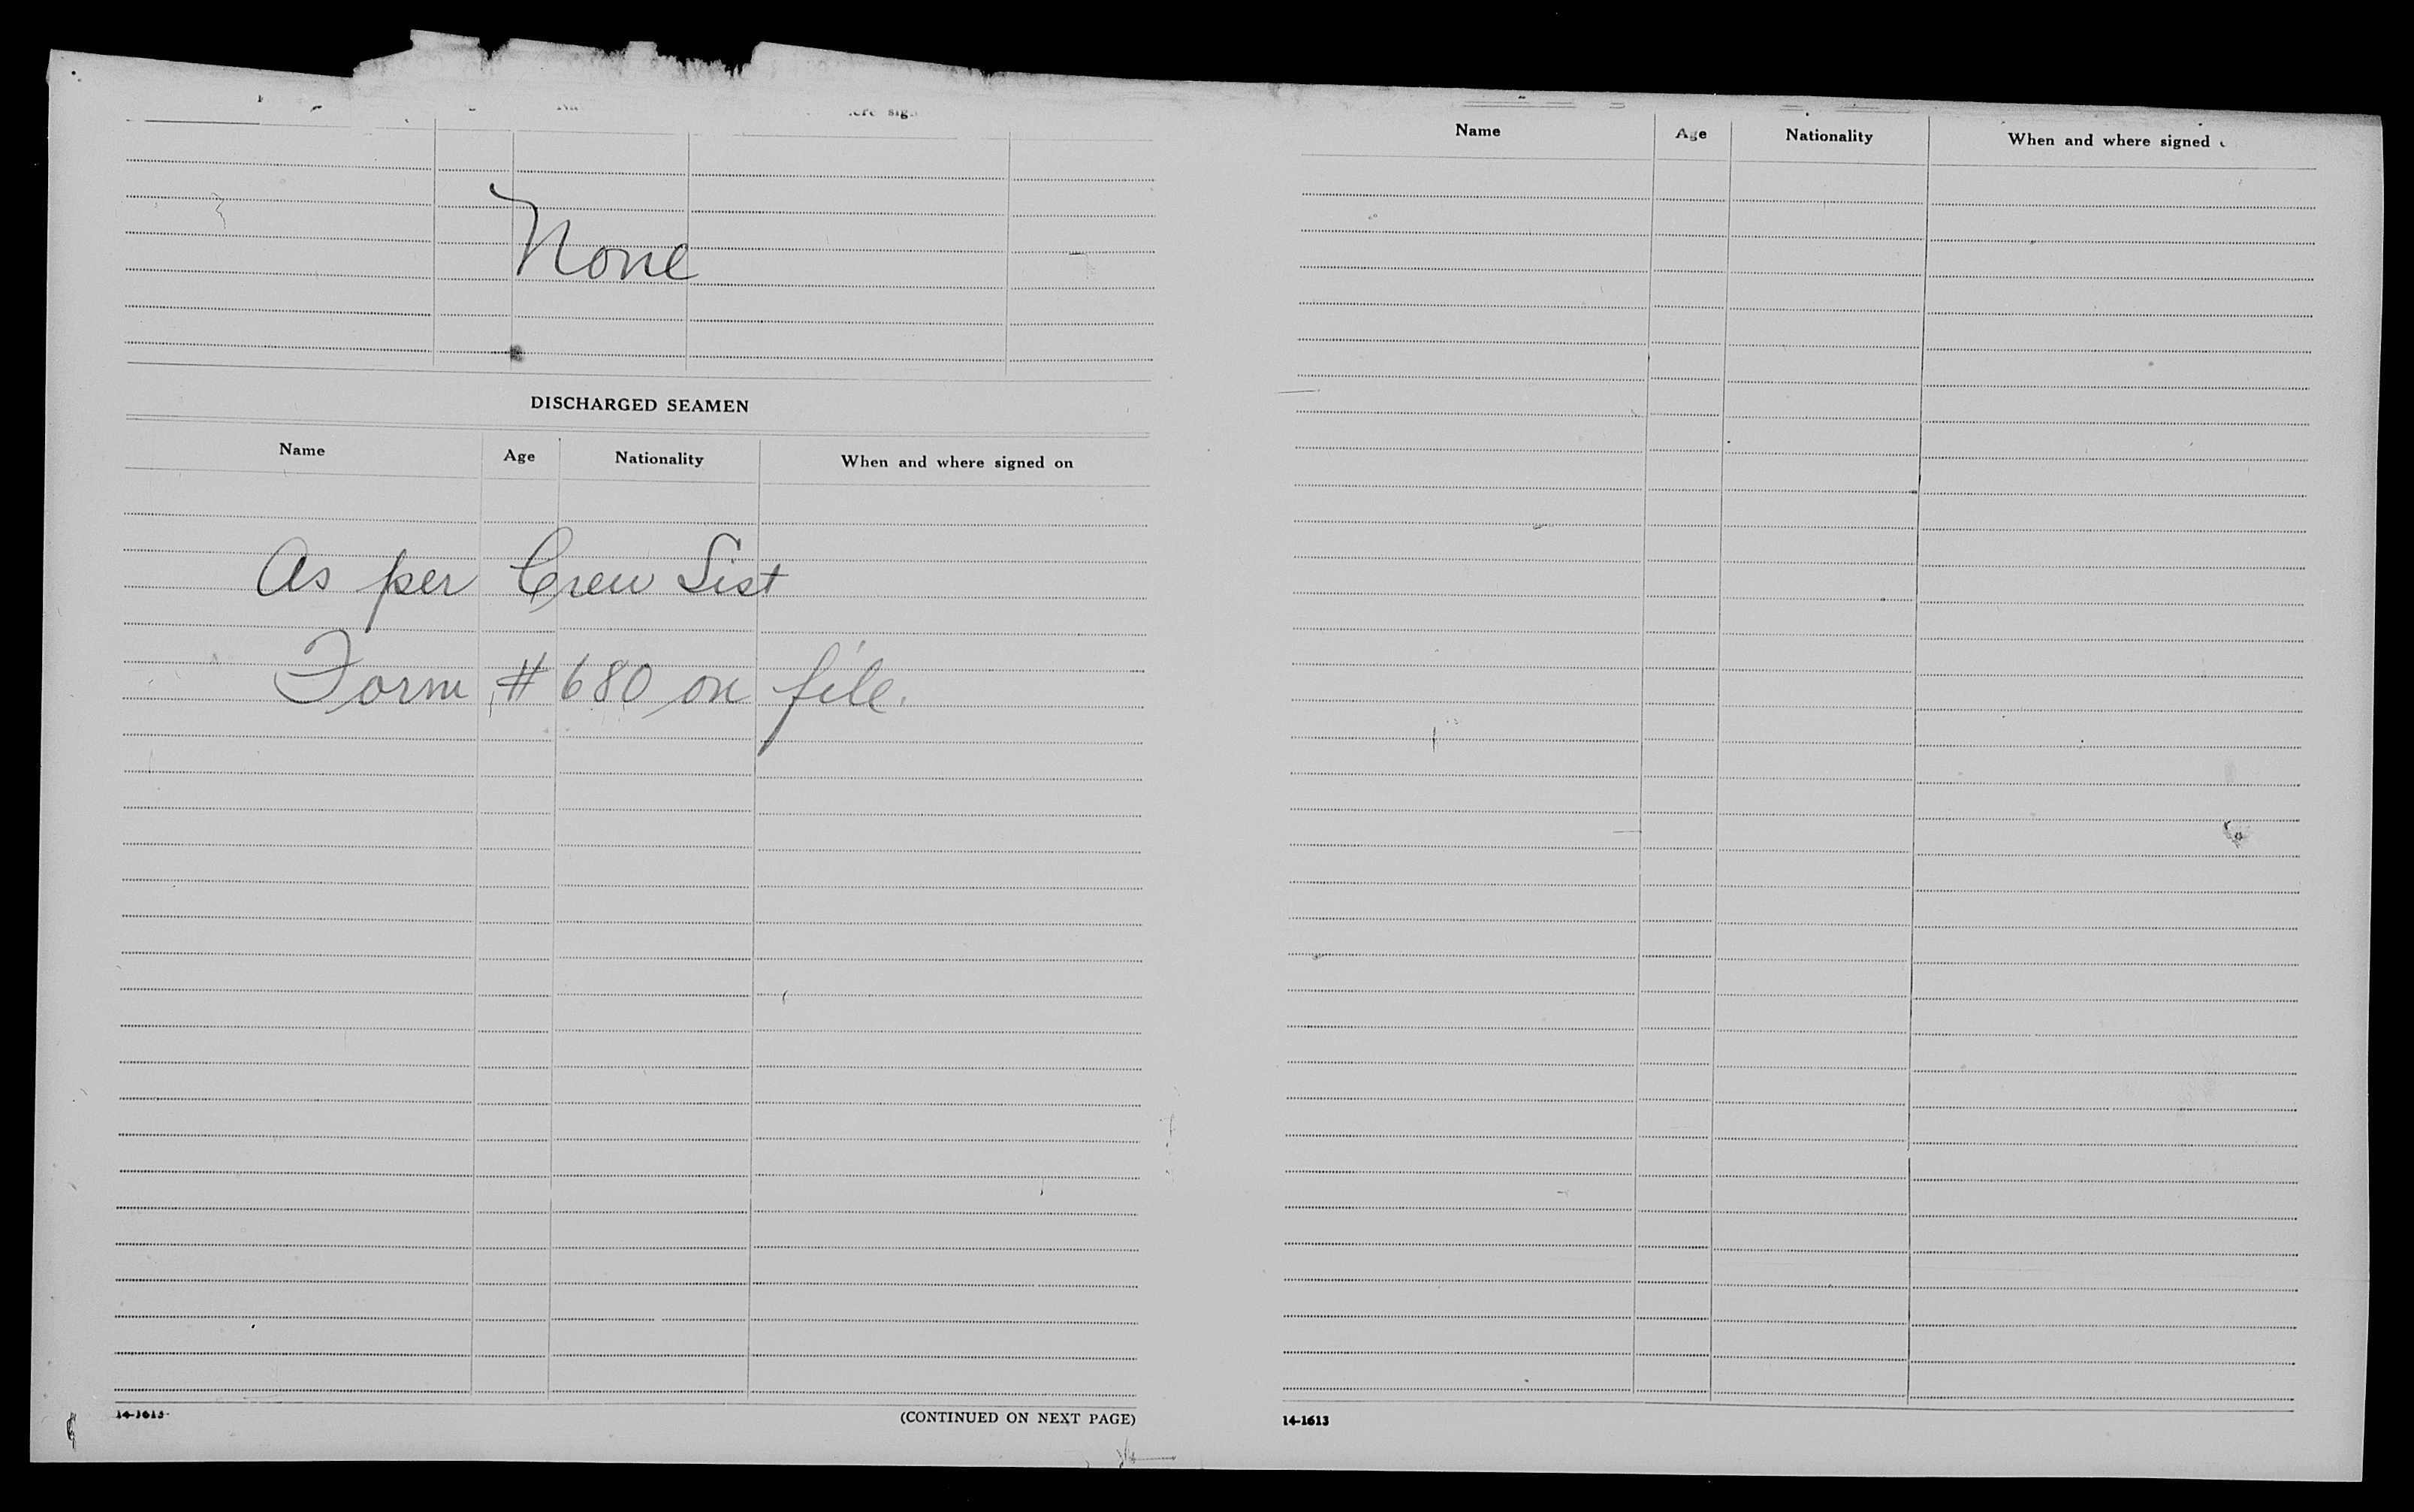 None
DISCHARGED SEAMEN
Name Age Nationality When and where signed on
As per Crew List
Form #680 on file.
14-1613
(CONTINUED ON NEXT PAGE)
Name Age Nationality When and where signed
14-1613